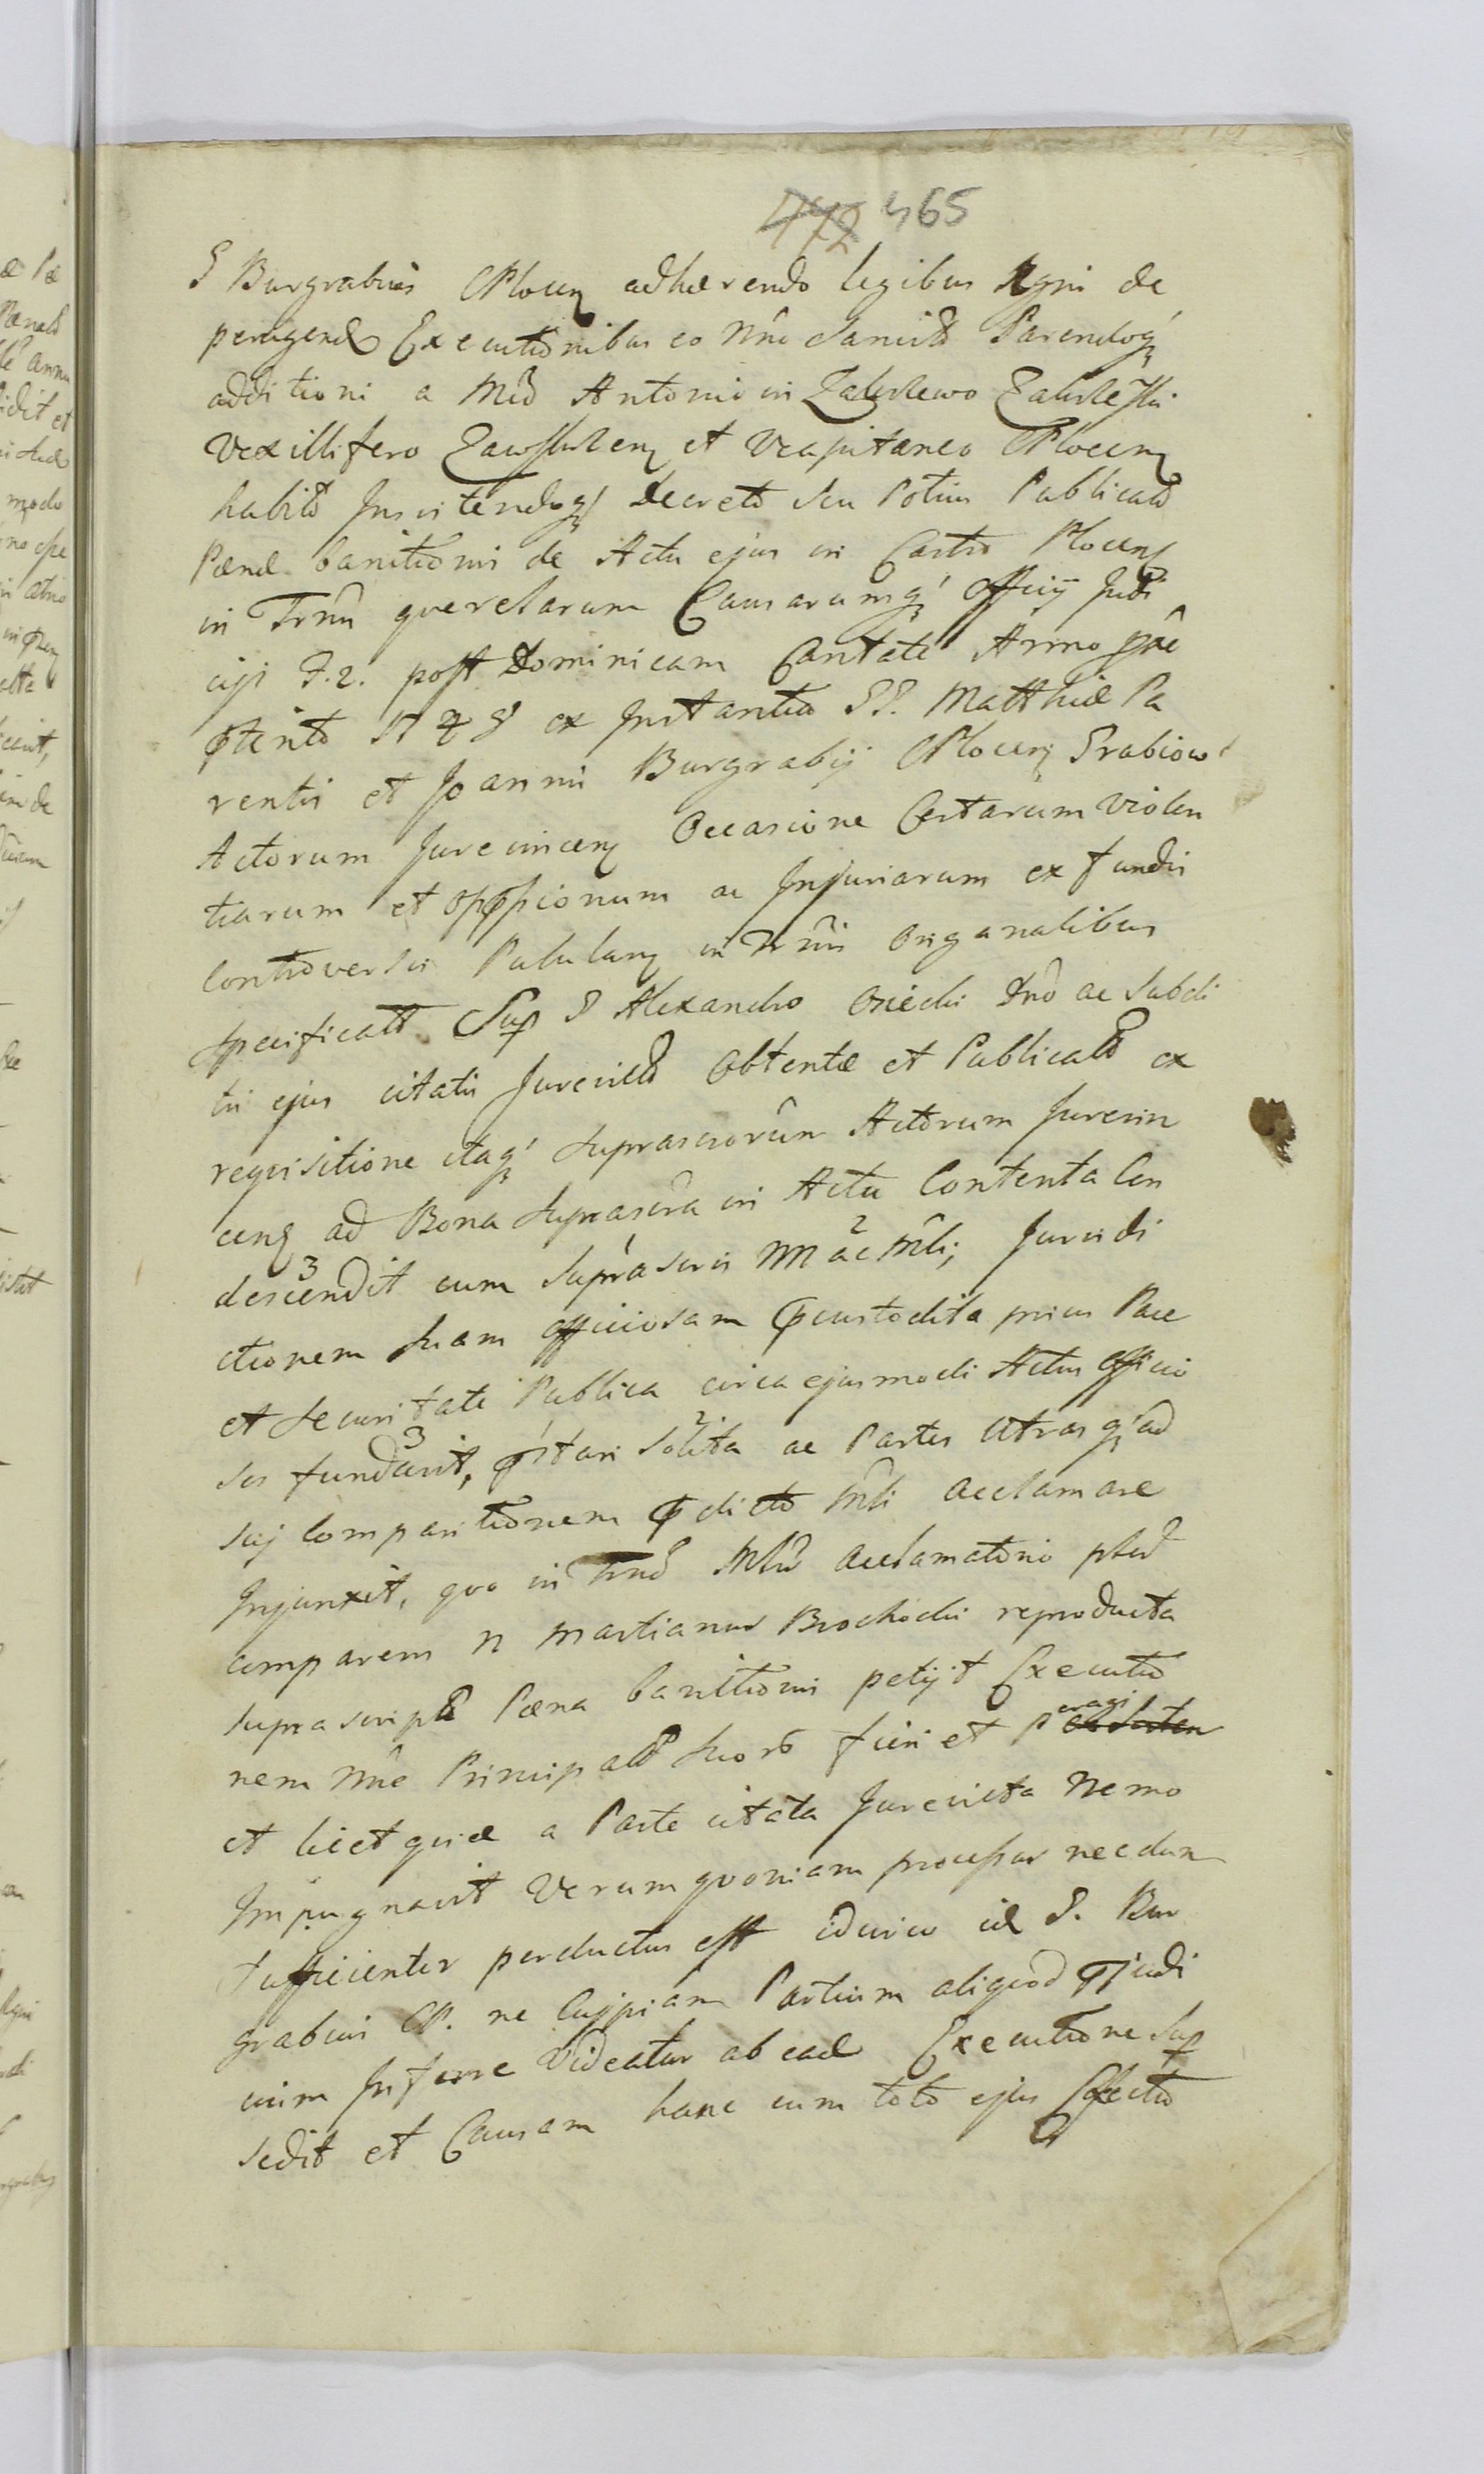 472 465
G Burgrabius CPlocen adhærendo legibus Regni de
peragend Executionibus eo Nne Sancito Parendoq
additioni a Mco Antonio in Załuskewo
Vexillifero et Vcapitaneo CPlocen
habito Insistendoq Decreto seu Potius Publicato
Pœnæ banitionis de Actu ejus in Castro Plocen
in Trmn querelarum Causarumq Officij Judi
cijs F. 2. post Dominicam Cantate Anno præ
ex Instantia GG. Matthiæ Pa
rentis et Joannis Burgrabij CPlocen Grabiow
Actorum Jurevincen Occasione Certarum Violen
tiarum et oppssionum ac Injuriarum ex fundis
Controversis in Trmis Origanalibus
specificatt Sup G Alexandro Dno ac Subdi
tis ejus citatis Jurevict Obtentæ et Publicatæ ex
requisitione itaq suprascrorum Actorum Jurevin
cen ad Bona suprascra in Actu Contenta Con
descendit 3 cum suprascris 1 Mli 2, Jurisdi
ctionem suam officiosam pcustodita prius Pace
et Securitate Publica circa ejusmodi Actus Officio
sus fundavit 3, 1 solita 2 ac Partes Utrasq ad
sui Comparitionem pdicto Mli acclamare
Injunxit, quo in Trno Mlri acclamatorio
comparens N Martianus Brochocki reproducta
suprascripta Pœna banitionis petijt Executio
nem Nne Principal suor fieri et peragi
et licet quid a Parte citata Jurevicta Nemo
Impugnavit Verum quoniam processus necdum
sufficienter perductus est idcirco id G. Bur
grabius CP. ne Cujpiam Partium aliquod pjudi
cium Inferre Videatur ab ead Executione Sup
sedit et Causam hanc cum toto ejus Effectu